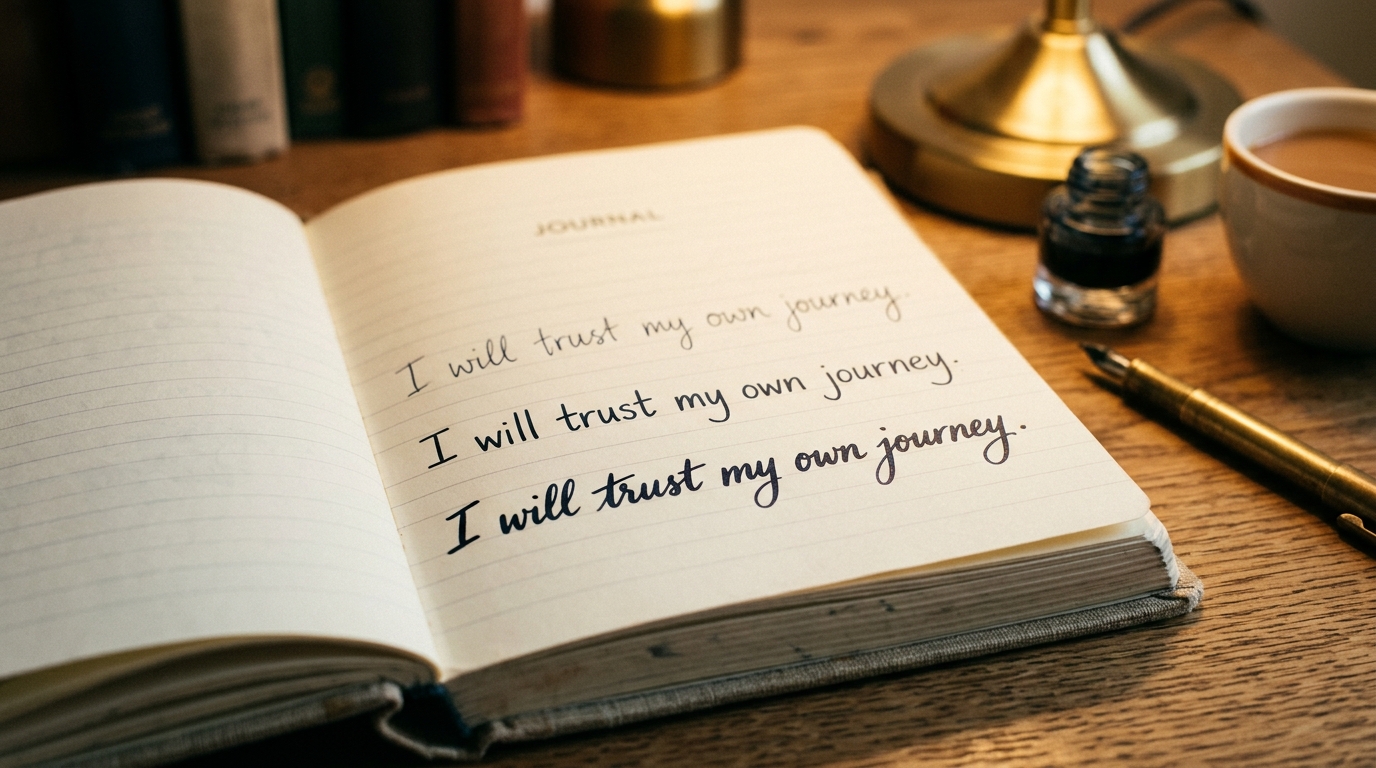 JOURNAL
I will trust my own journey.
I will trust my own journey.
I will trust my own journey.